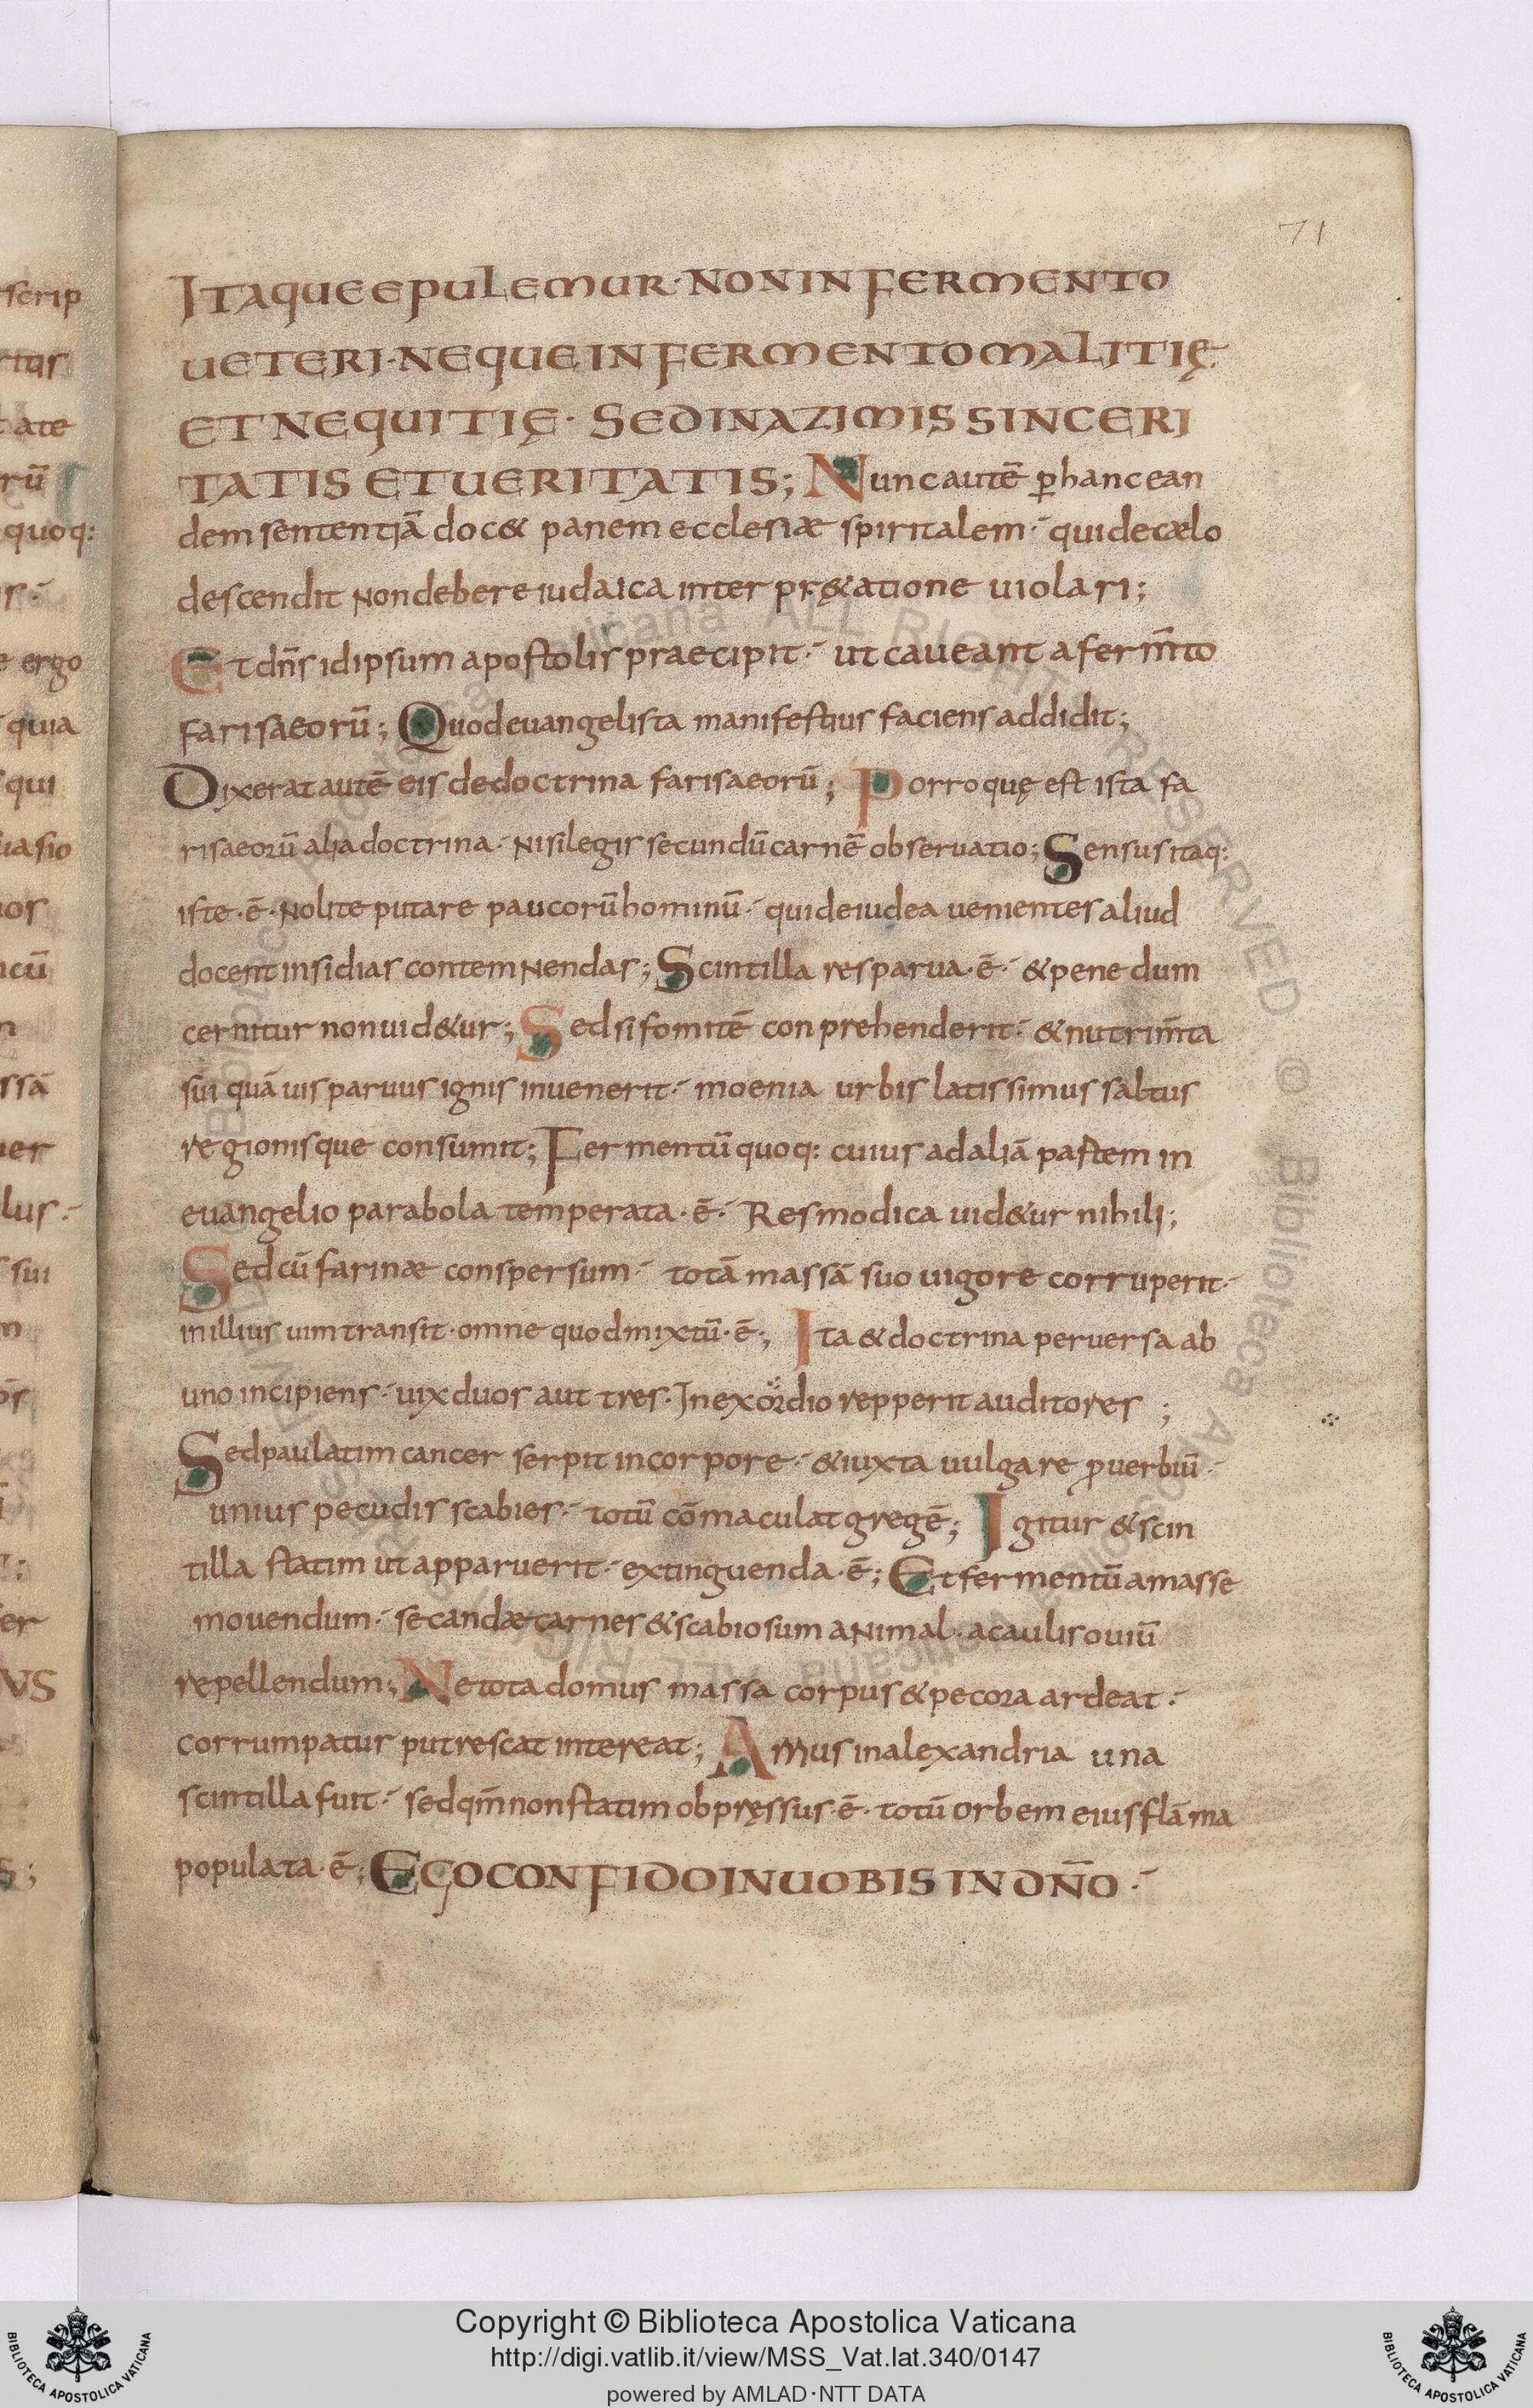 scrip
71
ITAQUE EPULEMUR· NON IN FERMENTO
UETERI· NEQUE IN FERMENTO MALITIĘ·
ET NEQUITIĘ· SED IN AZIMIS SINCERI
TATIS ET UERITATIS; Nunc autē ꝑ hanc ean
dem sententiā doc& panem ecclesiæ spiritalem·- qui de cælo
descendit non debere iudaica interpr&atione uiolari;
Et dn̄s idipsum apostolis praecipit·- ut caueant a ferm̄to
farisaeorū; Quod euangelista manifestius faciens addidit;
Dixerat autē eis de doctrina farisaeorū; Porro quę est ista fa
risaeorū alia doctrina·- nisi legis secundū carnē obseruatio; Sensus itaq:
iste·ē· Nolite putare paucorū hominū·- qui de iudea uenientes aliud
docent insidias contemnendas; Scintilla res parua·ē·- & pene dum
cernitur non uid&ur; Sed si fomitē conprehenderit·- & nutrim̄ta
sui quāuis paruus ignis inuenerit·- moenia urbis latissimus saltus
regionisque consumit; Fermentū quoq: cuius ad aliā partem in
euangelio parabola temperata·ē·- Res modica uid&ur nihili;
Sed cū farinæ conspersum·- totā massā suo uigore corruperit·-
in illius uim transit· omne quod mixtū·ē·; Ita & doctrina peruersa ab
uno incipiens·- uix duos aut tres· In exordio repperit auditores;
Sed paulatim cancer serpit in corpore·- & iuxta uulgare ꝓuerbiū·-
unius pecudis scabies·- totū cōmaculat gregē; Igitur & scin
tilla statim ut apparuerit·- extinguenda·ē; Et fermentū a masse
mouendum·- secandæ carnes & scabiosum animal· a caulis ouiū
repellendum; Ne tota domus massa corpus & pecora ardeat·-
corrumpatur putrescat intereat; Arrius in alexandria una
scintilla fuit·- sed qm̄ non statim obpręssus·ē· totū orbem eius flāma
populata·ē; EGO CONFIDO IN UOBIS IN DN̄O·-
Copyright © Biblioteca Apostolica Vaticana
http://digi.vatlib.it/view/MSS_Vat.lat.340/0147
powered by AMLAD·NTT DATA
BIBLIOTECA APOSTOLICA VATICANA
BIBLIOTECA APOSTOLICA VATICANA